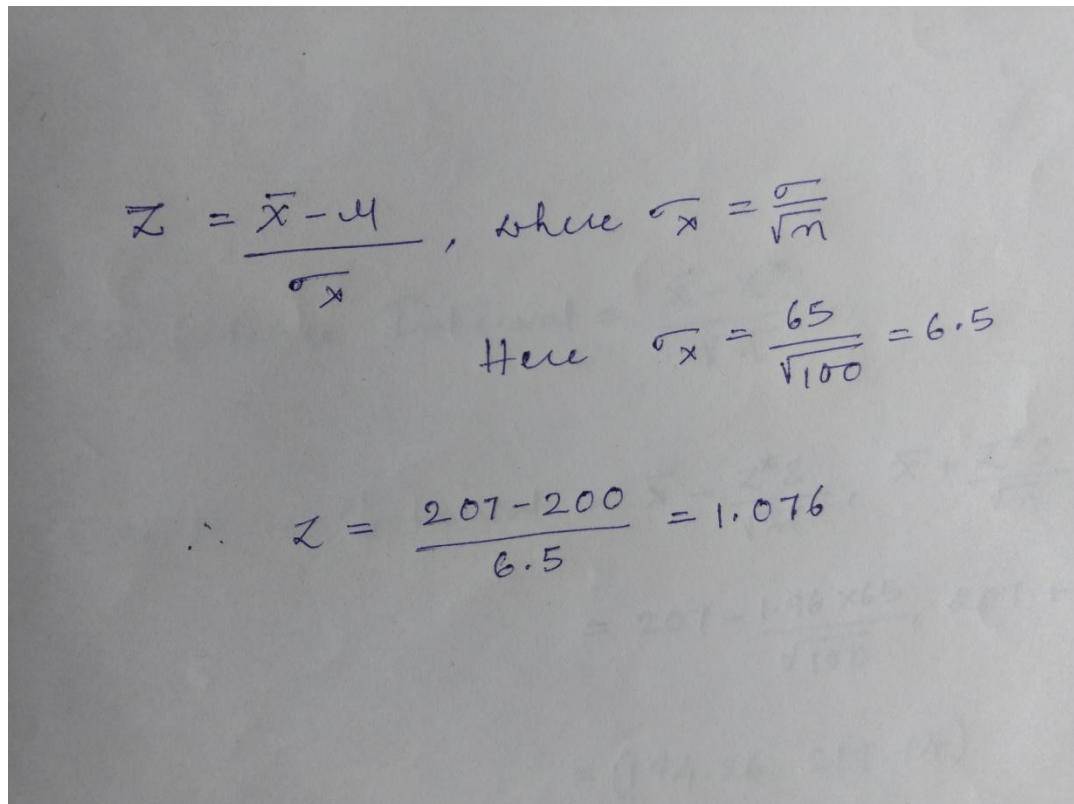 Z = x̄ - μ / σx̄ , where σx̄ = σ/√n
Here σx̄ = 65/√100 = 6.5
∴ Z = 207-200 / 6.5 = 1.076